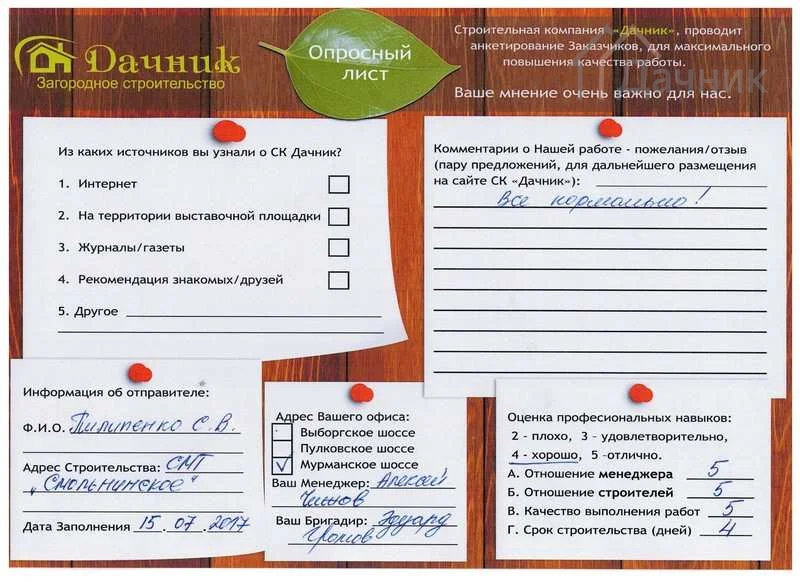 Дачник
Загородное строительство
Опросный
лист
Строительная компания «Дачник», проводит
анкетирование Заказчиков, для максимального
повышения качества работы.
Ваше мнение очень важно для нас.
Дачник
Из каких источников вы узнали о СК Дачник?
1. Интернет
2. На территории выставочной площадки
3. Журналы/газеты
4. Рекомендация знакомых/друзей
5. Другое
Комментарии о Нашей работе - пожелания/отзыв
(пару предложений, для дальнейшего размещения
на сайте СК «Дачник»):
Все нормально!
Информация об отправителе:
Ф.И.О. Пилипенко С. В.
Адрес Строительства: СМТ
„Смольнинское"
Дата Заполнения 15.07.2017
Адрес Вашего офиса:
Выборгское шоссе
Пулковское шоссе
√ Мурманское шоссе
Ваш Менеджер: Алексей
Ваш Бригадир: Эдуард
Громов
Оценка професиональных навыков:
2 - плохо, 3 - удовлетворительно,
4 - хорошо, 5 -отлично.
А. Отношение менеджера 5
Б. Отношение строителей 5
В. Качество выполнения работ 5
Г. Срок строительства (дней) 4